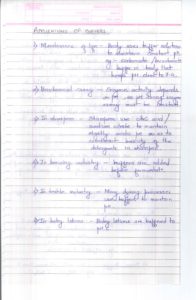 APPLICATIONS OF BUFFERS
1) Maintenance of life - Body uses buffer solutions
to maintain constant pH.
eg - carbonate / bicarbonate
buffer in body that
keeps pH close to 7.4.
2) Biochemical assay - Enzyme activity depends
on pH, so pH during enzyme
assay must be constant.
3) In shampoos - Shampoos use citric acid /
sodium citrate to maintain
slightly acidic pH so as to
counteract basicity of the
detergents in shampoo.
4) In brewing industry - buffers are added
before fermentation
5) In textile industry - Many dyeing processes
use buffers to maintain
pH.
6) In baby lotions - Baby lotions are buffered to
pH 6